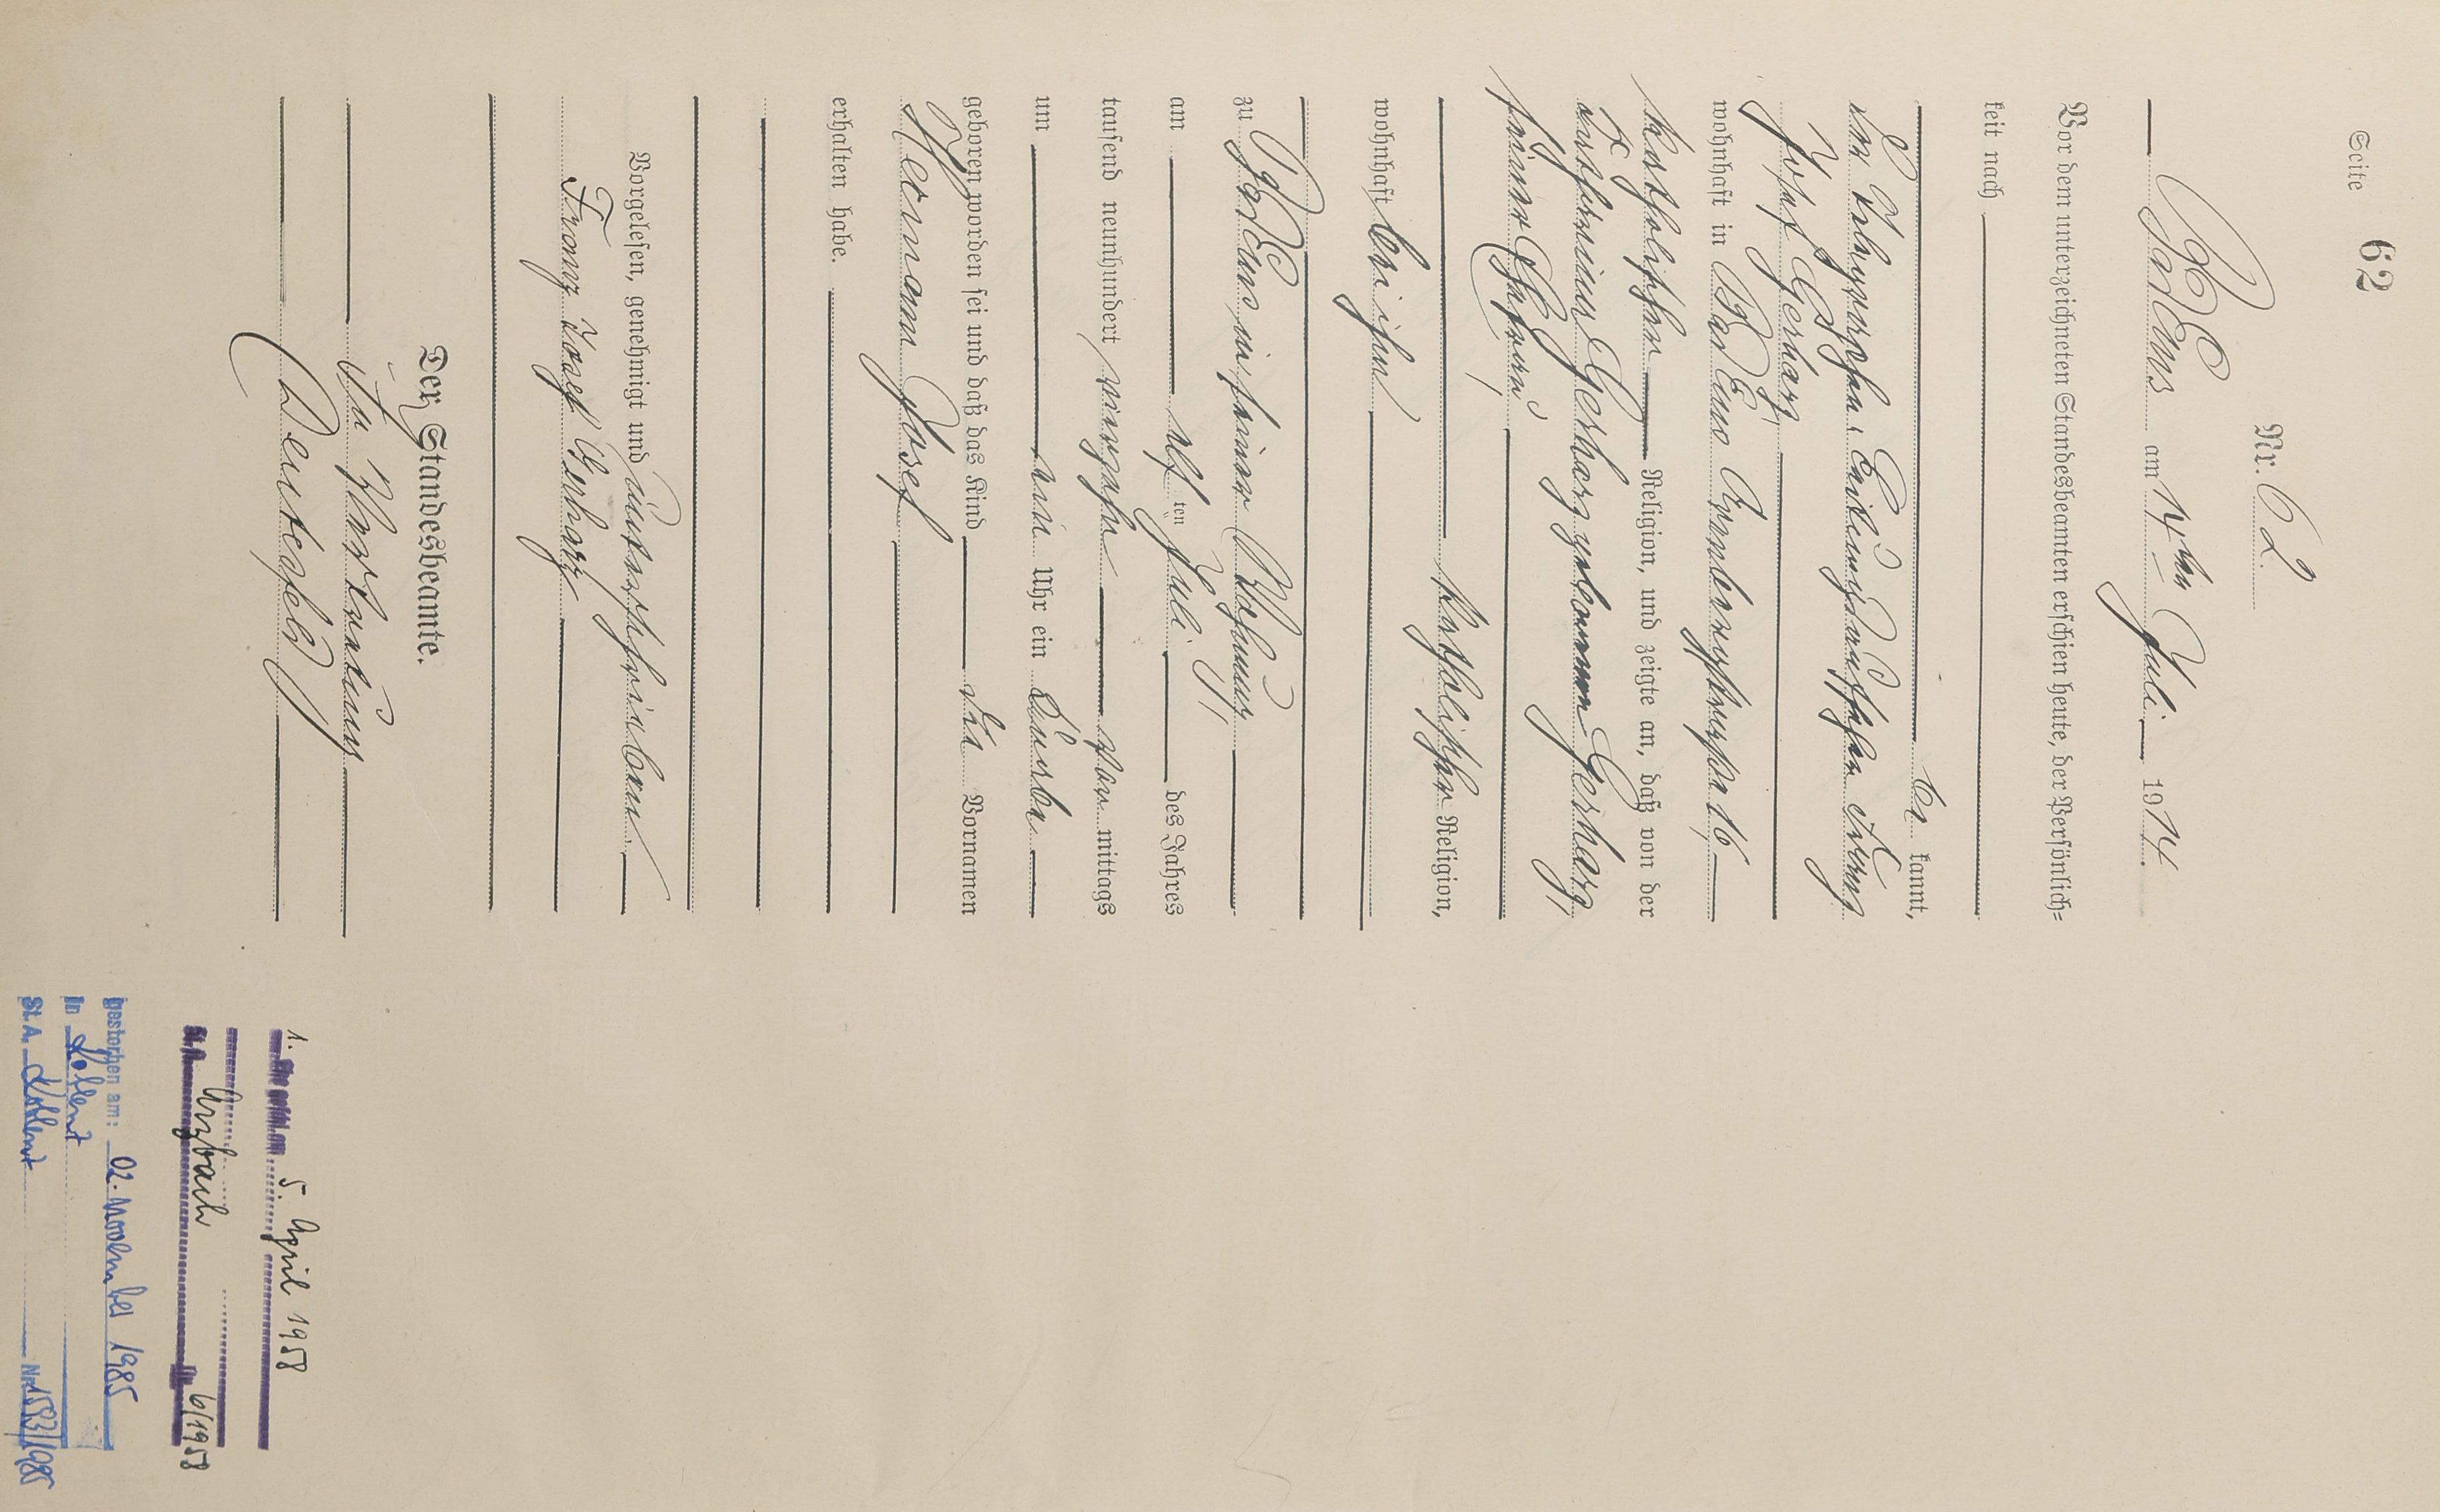 Seite 62
Nr. 62.
Bad Ems am 14ten Juli 1914.
Vor dem unterzeichneten Standesbeamten erschien heute, der Persönlich=
keit nach
be kannt,
Josef Gerharz
wohnhaft in Bad Ems 16
katholischer Religion, und zeigte an, daß von der
Gerharz geborenen Gerharz,
seiner Ehefrau,
katholischer Religion,
wohnhaft bei ihm
zu Bad Ems, in seiner Wohnung,
am elf ten Juli des Jahres
tausend neunhundert vierzehn vor mittags
um Uhr ein Knabe
geboren worden sei und daß das Kind die Vornamen
Hermann Josef
erhalten habe.
Vorgelesen, genehmigt und unterschrieben
Franz Josef Gerharz
Der Standesbeamte.
In Vertretung
1. 5. April 1958
Arzbach 6/1958
gestorben am: 02. November 1985
in Koblenz
St.A. Koblenz Nr. 1593/1985